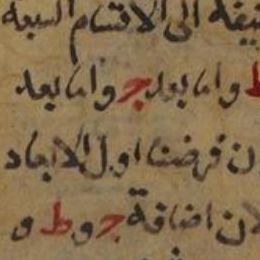 الى الاقسام السبعة
ط واما بعد ج واما بعد
ن فرضنا اول الابعاد
لان اضافة ج و ط و